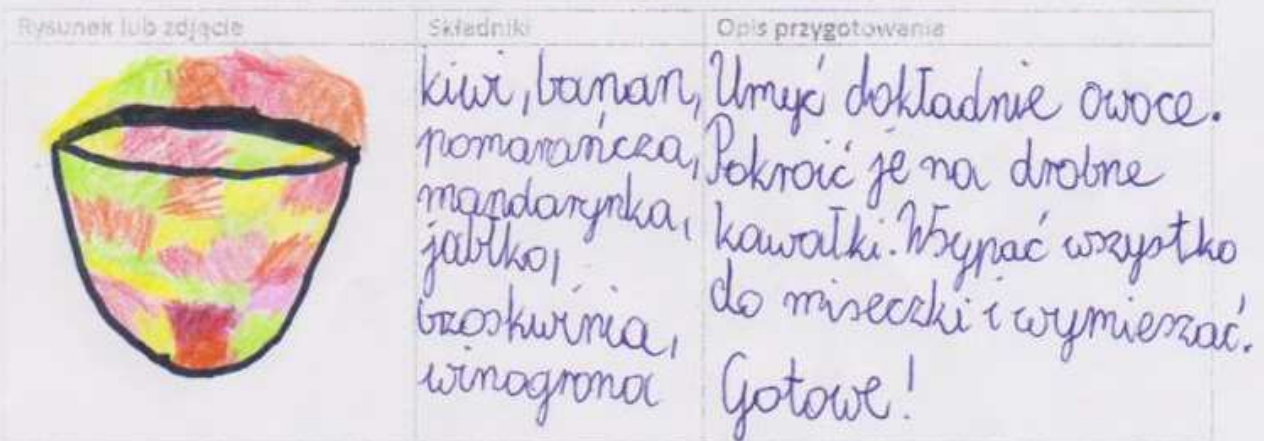 Rysunek lub zdjęcie
Składniki
Opis przygotowania
kiwi, banan,
pomarańcza,
mandarynka,
jabłko,
brzoskwinia,
winogrona
Umyć dokładnie owoce.
Pokroić je na drobne
kawałki. Wsypać wszystko
do miseczki i wymieszać.
Gotowe!